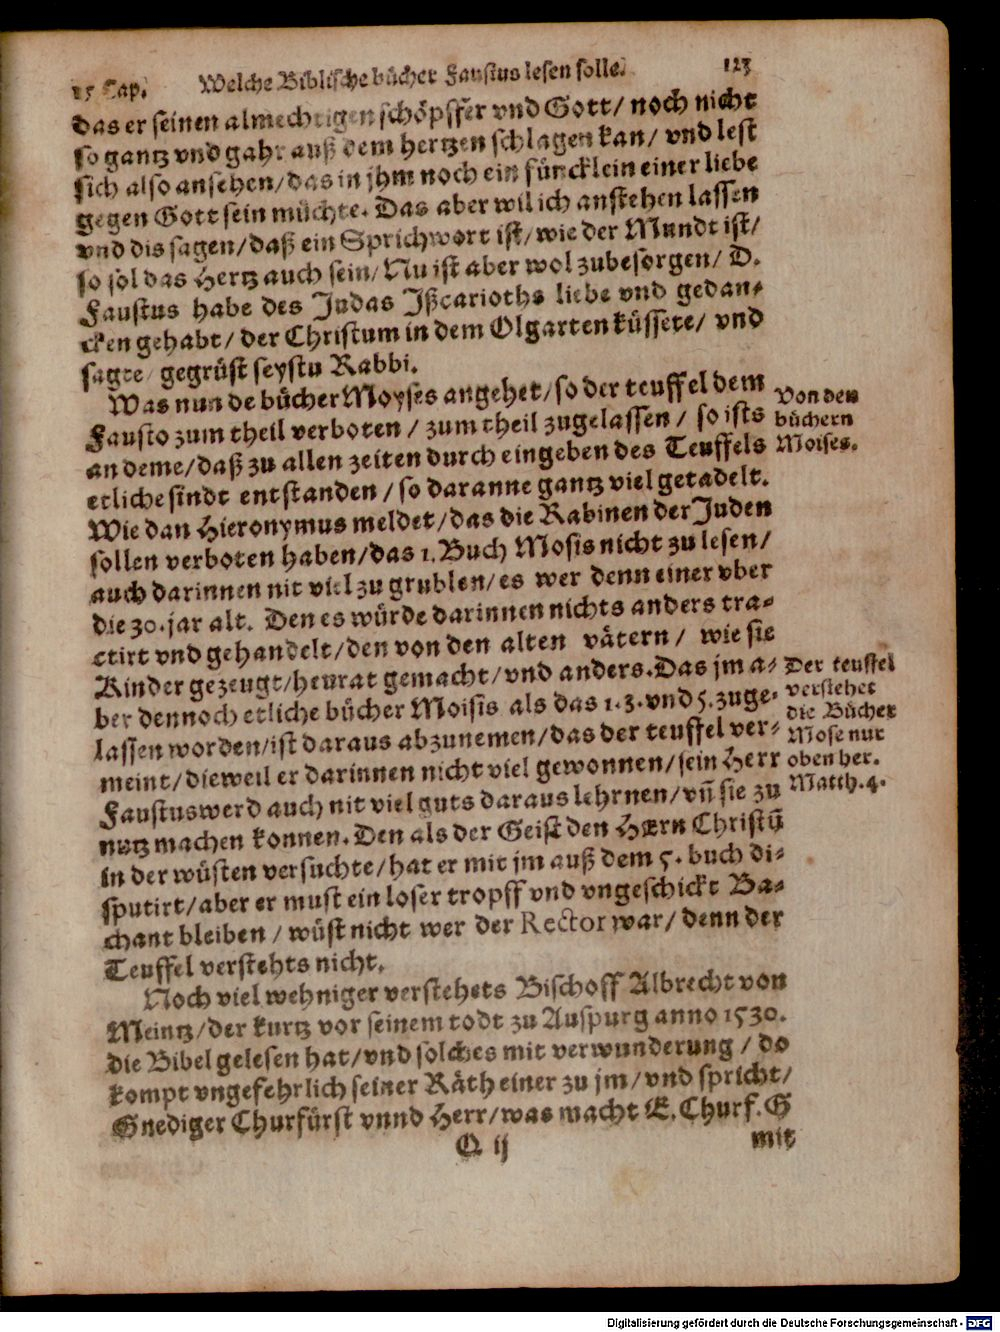 15 Cap. Welche Biblische bücher Faustus lesen solle. 123
das er seinen almechtigen schöpffer vnd Gott/ noch nicht
so gantz vnd gahr auß dem hertzen schlagen kan/ vnd lest
sich also ansehen/das in jhm noch ein füncklein einer liebe
gegen Gott sein müchte. Das aber wil ich anstehen lassen
vnd dis sagen/daß ein Sprichwort ist/wie der Mundt ist/
so sol das Hertz auch sein/Nu ist aber wol zubesorgen/ D.
Faustus habe des Judas Jßcarioths liebe vnd gedan-
cken gehabt/ der Christum in dem Olgarten küssete/ vnd
sagte/ gegrüst seystu Rabbi.
Was nun de bücher Moyses angehet/so der teuffel dem
Fausto zum theil verboten / zum theil zugelassen / so ists
an deme/daß zu allen zeiten durch eingeben des Teuffels
etliche sindt entstanden / so daranne gantz viel getadelt.
Wie dan Hieronymus meldet/das die Rabinen der Juden
sollen verboten haben/das 1. Buch Mosis nicht zu lesen/
auch darinnen nit viel zu grublen/es wer denn einer vber
die 30. jar alt. Den es würde darinnen nichts anders tra-
ctirt vnd gehandelt/den von den alten vätern / wie sie
Kinder gezeugt/heurat gemacht/vnd anders. Das jm a-
ber dennoch etliche bücher Moisis als das 1. 3. vnd 5. zuge-
lassen worden/ist daraus abzunemen/das der teuffel ver-
meint/dieweil er darinnen nicht viel gewonnen/sein Herr
Faustus werd auch nit viel guts daraus lehrnen/vñ sie zu
nutz machen konnen. Den als der Geist den HErn Christū
in der wüsten versuchte/hat er mit jm auß dem 5. buch di-
sputirt/aber er must ein loser tropff vnd vngeschickt Ba-
chant bleiben / wüst nicht wer der Rector war/ denn der
Teuffel verstehts nicht.
Noch viel wehniger verstehets Bischoff Albrecht von
Meintz/der kurtz vor seinem todt zu Auspurg anno 1530.
die Bibel gelesen hat/vnd solches mit verwunderung / do
kompt vngefehrlich seiner Räth einer zu jm/vnd spricht/
Gnediger Churfürst vnnd Herr/was macht E. Churf. G
Q ij mit
Von den
büchern
Moises.
Der teuffel
verstehet
die Bücher
Mose nur
oben her.
Matth. 4.
Digitalisierung gefördert durch die Deutsche Forschungsgemeinschaft - DFG